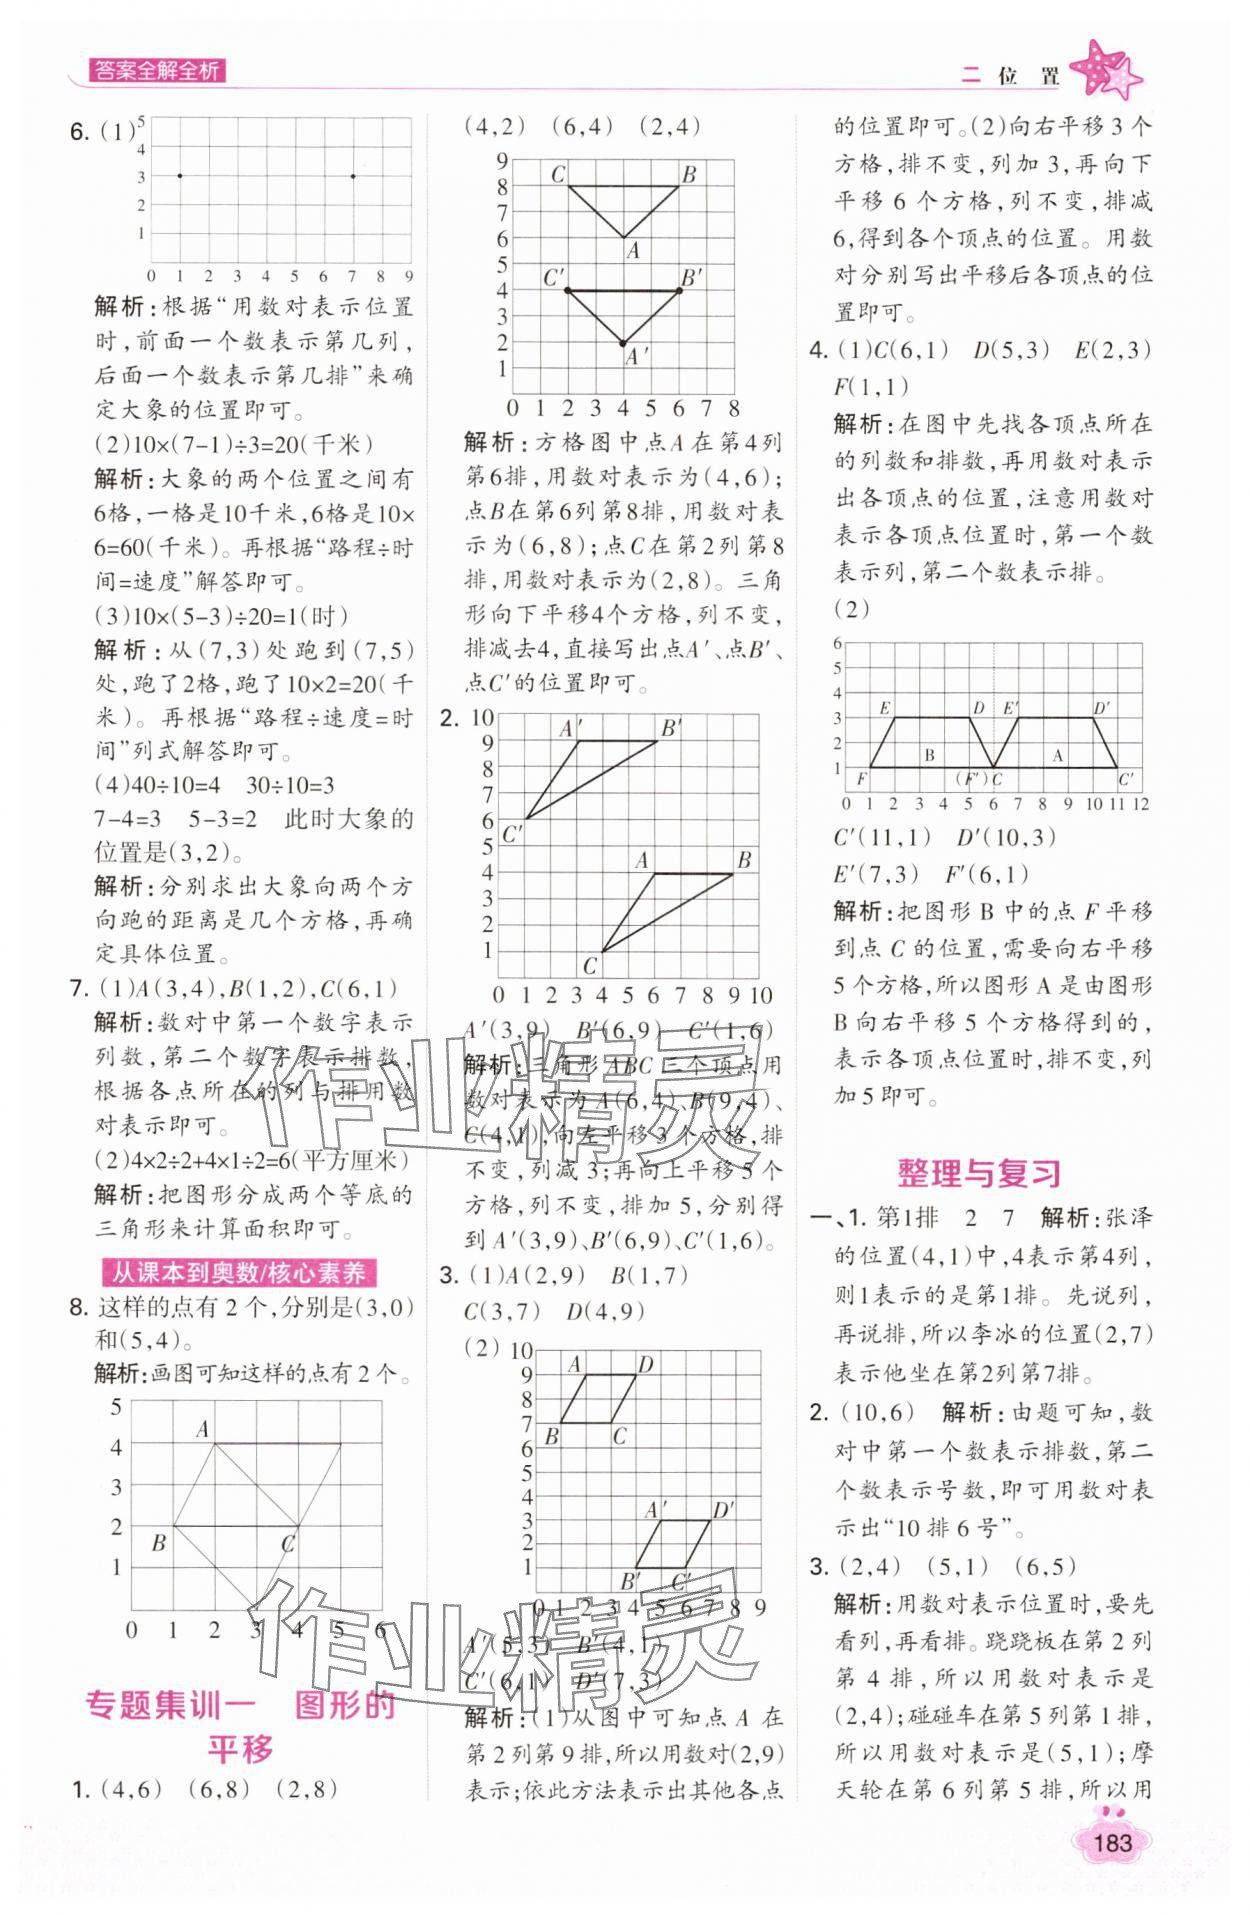 答案全解全析
二 位 置
6. (1)
5
4
3
2
1
0 1 2 3 4 5 6 7 8 9
解析:根据“用数对表示位置
时,前面一个数表示第几列,
后面一个数表示第几排”来确
定大象的位置即可。
(2)10×(7-1)÷3=20(千米)
解析:大象的两个位置之间有
6格,一格是10千米,6格是10×
6=60(千米)。再根据“路程÷时
间=速度”解答即可。
(3)10×(5-3)÷20=1(时)
解析:从(7,3)处跑到(7,5)
处,跑了2格,跑了10×2=20(千
米)。再根据“路程÷速度=时
间”列式解答即可。
(4)40÷10=4 30÷10=3
7-4=3 5-3=2 此时大象的
位置是(3,2)。
解析:分别求出大象向两个方
向跑的距离是几个方格,再确
定具体位置。
7. (1)A(3,4),B(1,2),C(6,1)
解析:数对中第一个数字表示
列数,第二个数字表示排数,
根据各点所在的列与排用数
对表示即可。
(2)4×2÷2+4×1÷2=6(平方厘米)
解析:把图形分成两个等底的
三角形来计算面积即可。
从课本到奥数/核心素养
8. 这样的点有2个,分别是(3,0)
和(5,4)。
解析:画图可知这样的点有2个。
5
4
3
2
1
A
B
C
0 1 2 3 4 5 6
专题集训一 图形的
平移
1. (4,6) (6,8) (2,8)
(4,2) (6,4) (2,4)
9
8
7
6
5
4
3
2
1
C
B
A
C′
B′
A′
0 1 2 3 4 5 6 7 8
解析:方格图中点A在第4列
第6排,用数对表示为(4,6);
点B在第6列第8排,用数对表
示为(6,8);点C在第2列第8
排,用数对表示为(2,8)。三角
形向下平移4个方格,列不变,
排减去4,直接写出点A′、点B′、
点C′的位置即可。
2.
10
9
8
7
6
5
4
3
2
1
A′
B′
C′
A
B
C
0 1 2 3 4 5 6 7 8 9 10
A′(3,9) B′(6,9) C′(1,6)
解析:三角形ABC三个顶点用
数对表示为A(6,4)、B(9,4)、
C(4,1),向左平移3个方格,排
不变,列减3;再向上平移5个
方格,列不变,排加5,分别得
到A′(3,9)、B′(6,9)、C′(1,6)。
3. (1)A(2,9) B(1,7)
C(3,7) D(4,9)
(2)
10
9
8
7
6
5
4
3
2
1
A
D
B
C
A′
D′
B′
C′
0 1 2 3 4 5 6 7 8 9
A′(5,3) B′(4,1)
C′(6,1) D′(7,3)
解析:(1)从图中可知点A在
第2列第9排,所以用数对(2,9)
表示;依此方法表示出其他各点
的位置即可。(2)向右平移3个
方格,排不变,列加3,再向下
平移6个方格,列不变,排减
6,得到各个顶点的位置。用数
对分别写出平移后各顶点的位
置即可。
4. (1)C(6,1) D(5,3) E(2,3)
F(1,1)
解析:在图中先找各顶点所在
的列数和排数,再用数对表示
出各顶点的位置,注意用数对
表示各顶点位置时,第一个数
表示列,第二个数表示排。
(2)
6
5
4
3
2
1
E D E′ D′
B A
F (F′) C C′
0 1 2 3 4 5 6 7 8 9 10 11 12
C′(11,1) D′(10,3)
E′(7,3) F′(6,1)
解析:把图形B中的点F平移
到点C的位置,需要向右平移
5个方格,所以图形A是由图形
B向右平移5个方格得到的,
表示各顶点位置时,排不变,列
加5即可。
整理与复习
一、1. 第1排 2 7 解析:张泽
的位置(4,1)中,4表示第4列,
则1表示的是第1排。先说列,
再说排,所以李冰的位置(2,7)
表示他坐在第2列第7排。
2. (10,6) 解析:由题可知,数
对中第一个数表示排数,第二
个数表示号数,即可用数对表
示出“10排6号”。
3. (2,4) (5,1) (6,5)
解析:用数对表示位置时,要先
看列,再看排。跷跷板在第2列
第4排,所以用数对表示是
(2,4);碰碰车在第5列第1排,
所以用数对表示是(5,1);摩
天轮在第6列第5排,所以用
作业精灵
作业精灵
183